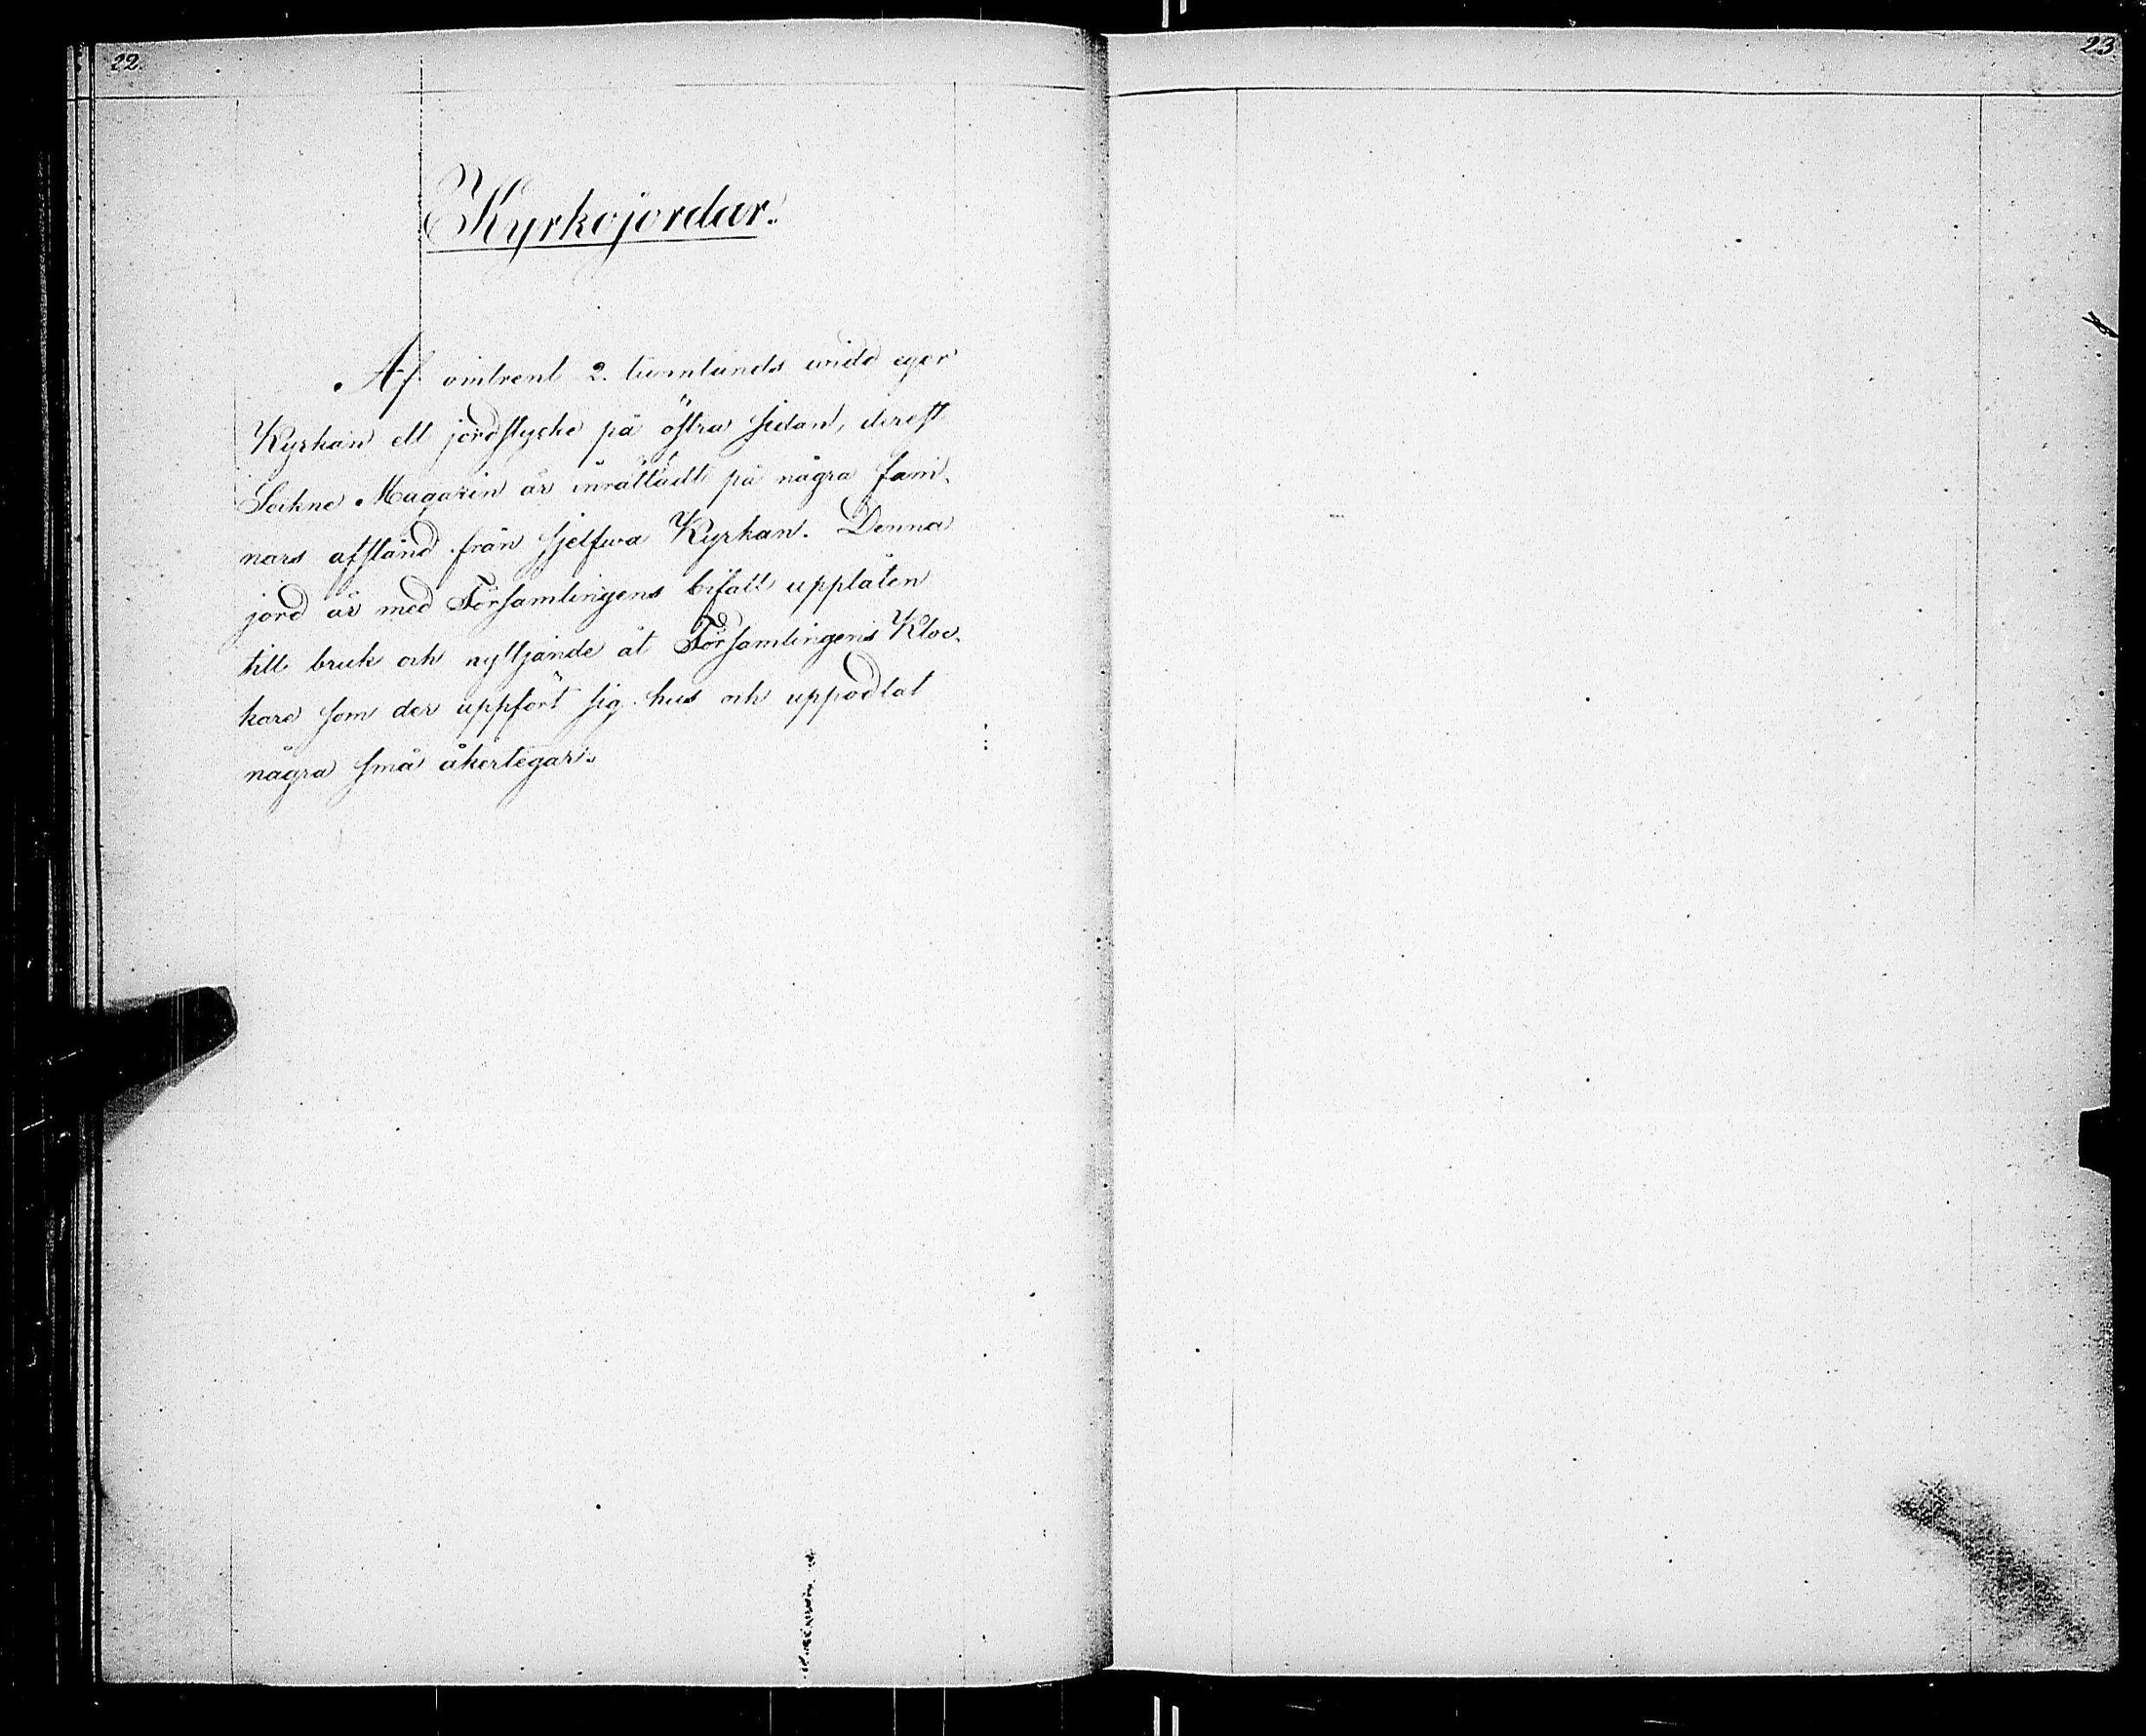 22.
23.
Kyrkojordar.
Af omtrent 2. tunnlands widd eger
Kyrkan ett jordstycke på östra sidan, derest
Sockne Magazin är inrättadt på några fam-
nars afstånd från sjelfwa Kyrkan. Denna
jord är med Församlingens bifall upplåten
till bruk och nyttjande åt Församlingens Kloc-
kare som der uppfört sig hus och uppodlat
några små åkertegar.